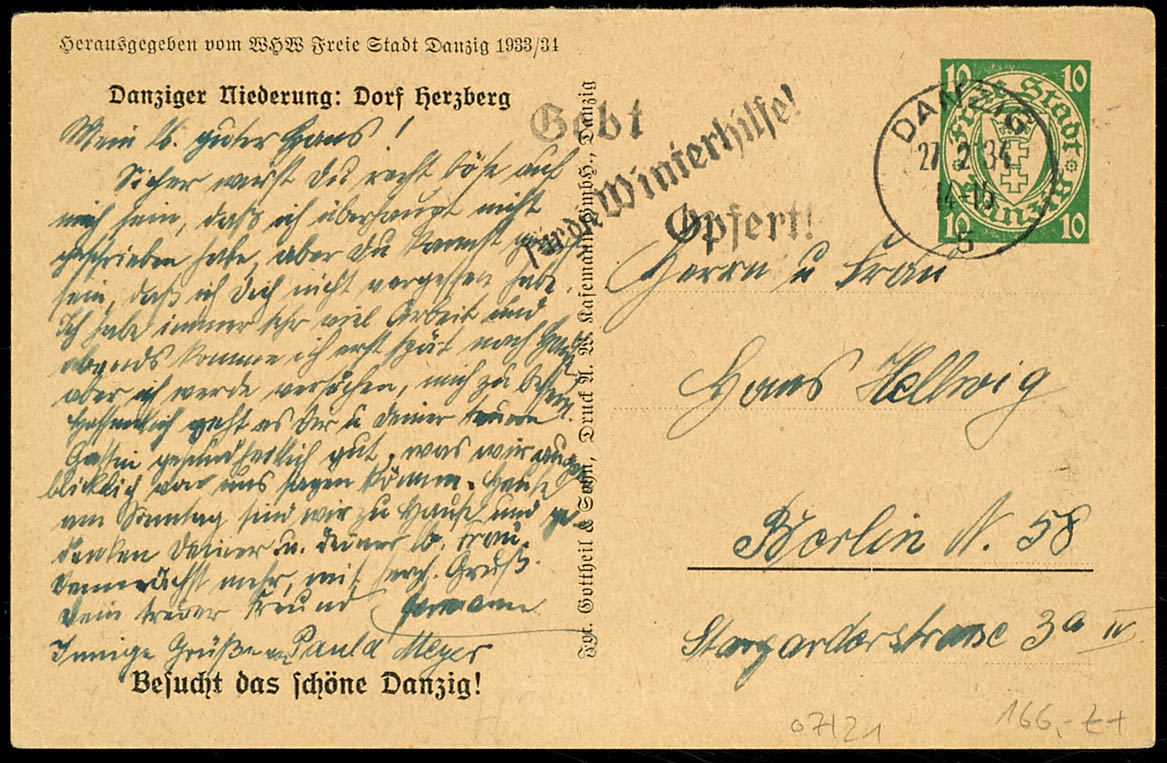 Herausgegeben vom WHW Freie Stadt Danzig 1933/34
Danziger Niederung: Dorf Herzberg
Mein lb. guter Hans!
Sicher wirst Du recht böse auf
mich sein, daß ich überhaupt nicht
geschrieben habe, aber Du kannst gewiß
sein, daß ich Dich nicht vergessen habe.
Ich habe immer sehr viel Arbeit und
abends komme ich erst spät nach Hause
aber ich werde versuchen, mich zu bessern.
Hoffentlich geht es Dir u. Deiner teuren
Gattin gesundheitlich gut, was wir augen-
blicklich von uns sagen können. Heute
am Sonntag sind wir zu Hause und ge-
denken Deiner u. Deiner lb. Frau.
Demnächst mehr, mit herzl. Gruß.
Dein treuer Freund Hermann
Innige Grüße Paula Meyer
Besucht das schöne Danzig!
Fgt. Gottheil & Sohn, Druck A. W. Kafemann GmbH., Danzig
Gebt
für die Winterhilfe!
Opfert!
DANZIG
27.2.34
14-15
5
10 10
Freie Stadt
Danzig
10 10
Herrn u Frau
Hans Hellwig
Berlin N. 58
Stargarderstrasse 3a IV
07121
166,-